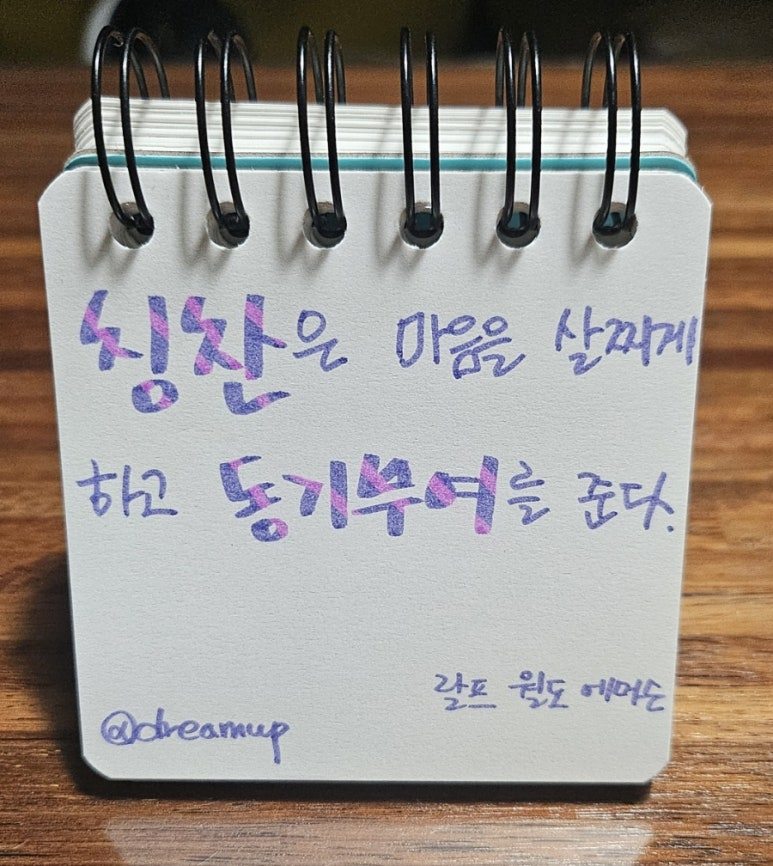 칭찬은 마음을 살찌게
하고 동기부여를 준다.
랄프 월도 에머슨
@dreamup